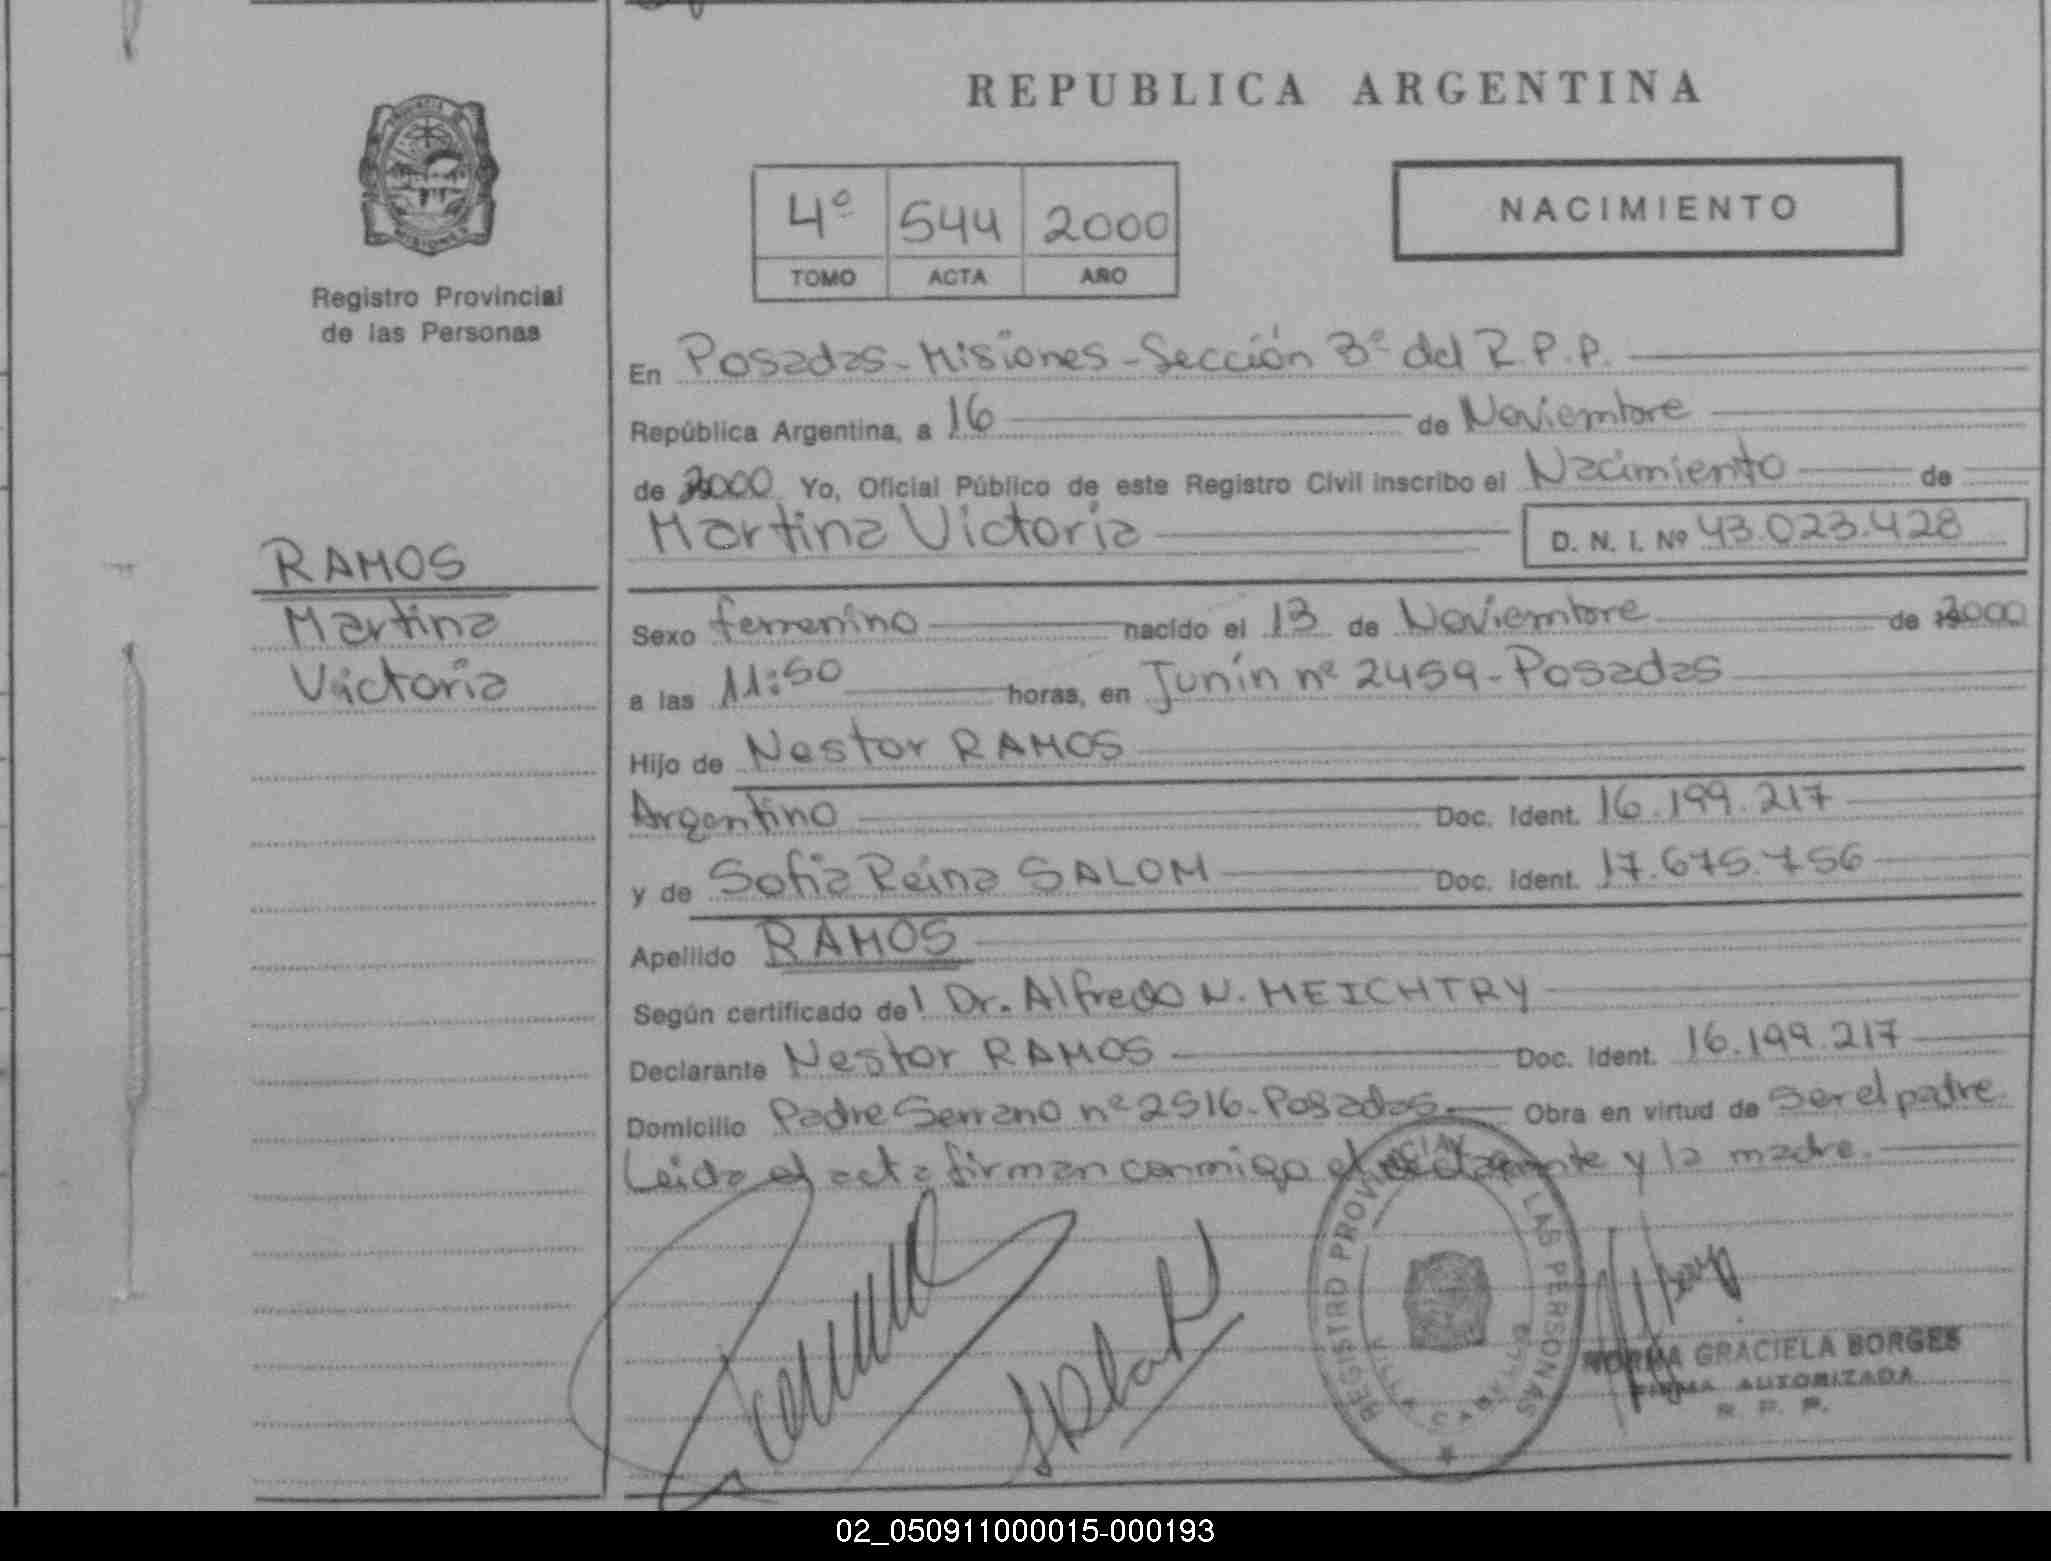 REPUBLICA ARGENTINA
PROVINCIA
MISIONES
Registro Provincial
de las Personas
4º 544 2000
TOMO ACTA AÑO
NACIMIENTO
En Posadas-Misiones-Sección 3º del R.P.P.
República Argentina, a 16 de Noviembre
de 2000 Yo, Oficial Público de este Registro Civil inscribo el Nacimiento de
Martina Victoria D. N. I. Nº 43.023.428
RAMOS
Martina
Victoria
Sexo femenino nacido el 13 de Noviembre de 2000
a las 11:50 horas, en Junín nº 2459-Posadas
Hijo de Nestor RAMOS
Argentino Doc. Ident. 16.199.217
y de Sofia Reina SALOM Doc. Ident. 17.675.756
Apellido RAMOS
Según certificado del Dr. Alfredo N. MEICHTRY
Declarante Nestor RAMOS Doc. Ident. 16.199.217
Domicilio Padre Serrano nº 2516-Posadas. Obra en virtud de ser el padre.
Leida el acta firman conmigo el declarante y la madre.
REGISTRO PROVINCIAL LAS PERSONAS
NORMA GRACIELA BORGES
FIRMA AUTORIZADA
R. P. P.
02_050911000015-000193